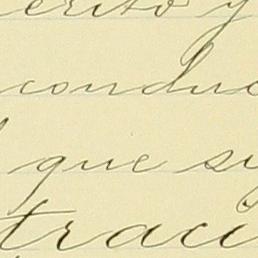 erito y
conduc
que su
traci